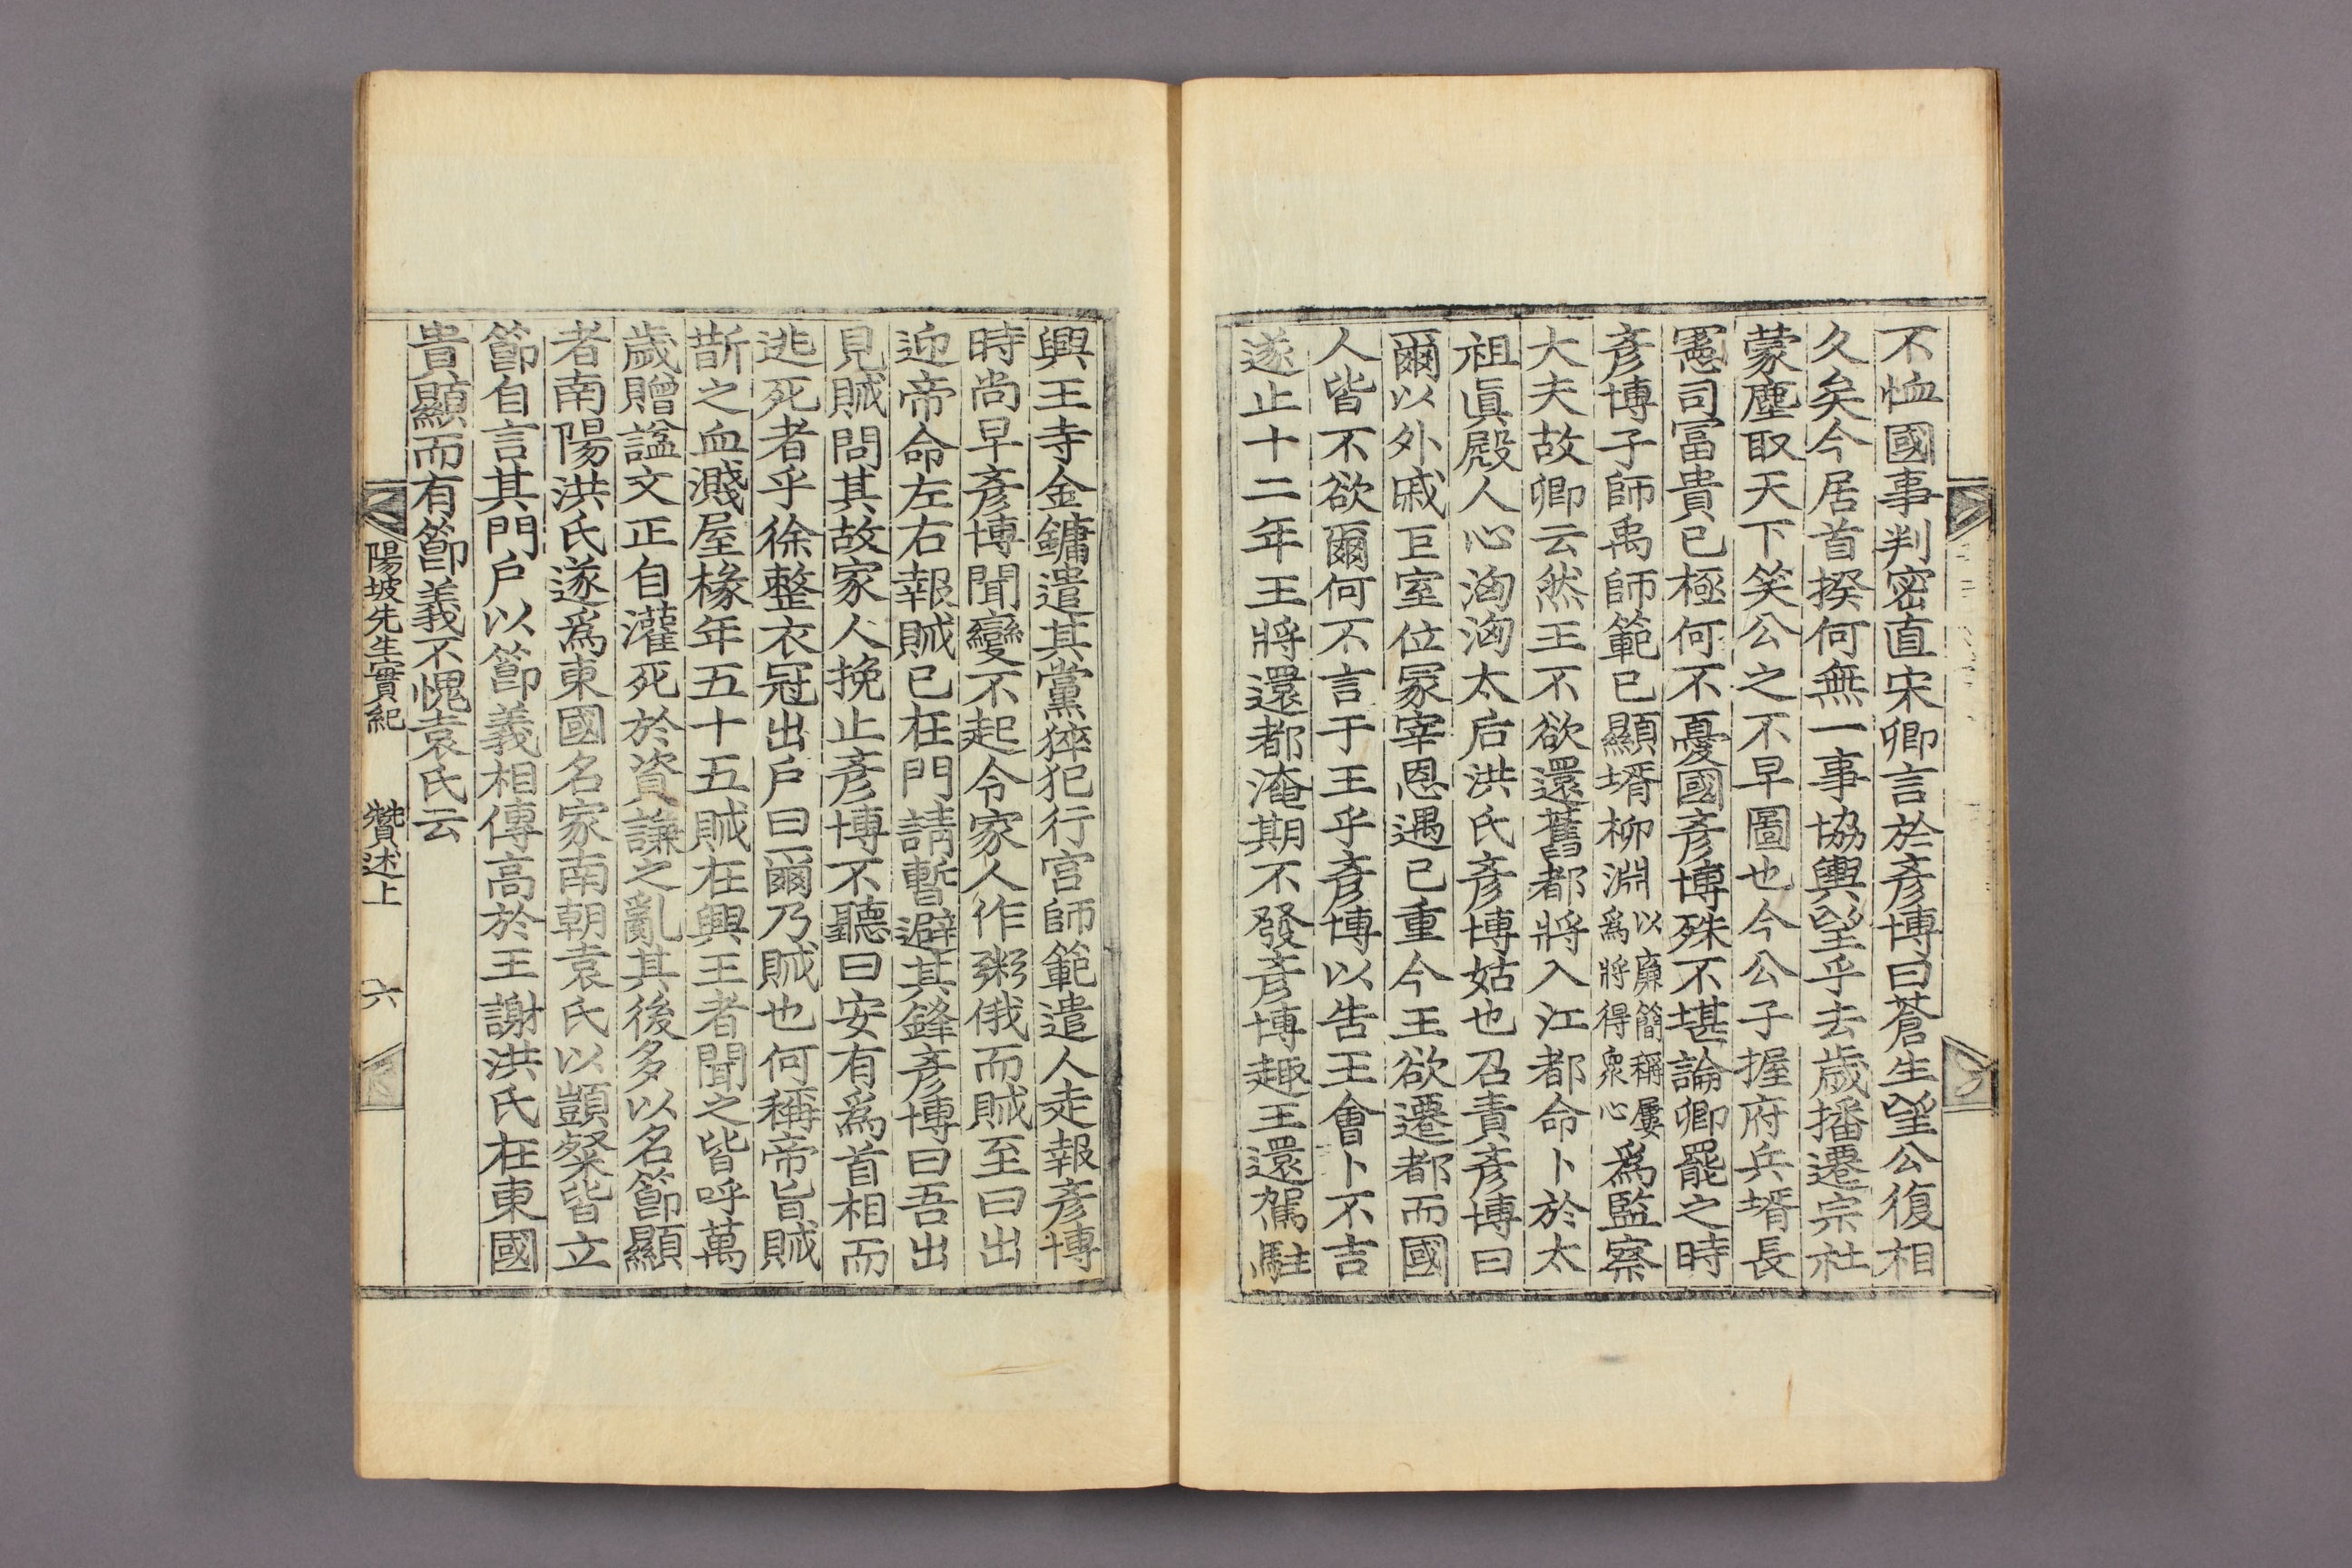 不恤國事判密直宋卿言於彥博曰蒼生望公復相
久矣今居首揆何無一事協輿望乎去歲播遷宗社
蒙塵取天下笑公之不早圖也今公子握府兵壻長
憲司富貴已極何不憂國彥博殊不堪論卿罷之時
彥博子師禹師範已顯壻柳淵以廉簡稱屢爲將得衆心爲監察
大夫故卿云然王不欲還舊都將入江都命卜於太
祖眞殿人心洶洶太后洪氏彥博姑也召責彥博曰
爾以外戚巨室位冢宰恩遇已重今王欲遷都而國
人皆不欲爾何不言于王乎彥博以告王會卜不吉
遂止十二年王將還都淹期不發彥博趣王還駕駐
興王寺金鏞遣其黨猝犯行宮師範遣人走報彥博
時尚早彥博聞變不起令家人作粥俄而賊至曰出
迎帝命左右報賊已在門請暫避其鋒彥博曰吾出
見賊問其故家人挽止彥博不聽曰安有爲首相而
逃死者乎徐整衣冠出戶曰爾乃賊也何稱帝旨賊
斮之血濺屋椽年五十五賊在興王者聞之皆呼萬
歲贈諡文正自灌死於資謙之亂其後多以名節顯
者南陽洪氏遂爲東國名家南朝袁氏以顗粲皆立
節自言其門戶以節義相傳高於王謝洪氏在東國
貴顯而有節義不愧袁氏云
陽坡先生實紀 贊述上 六